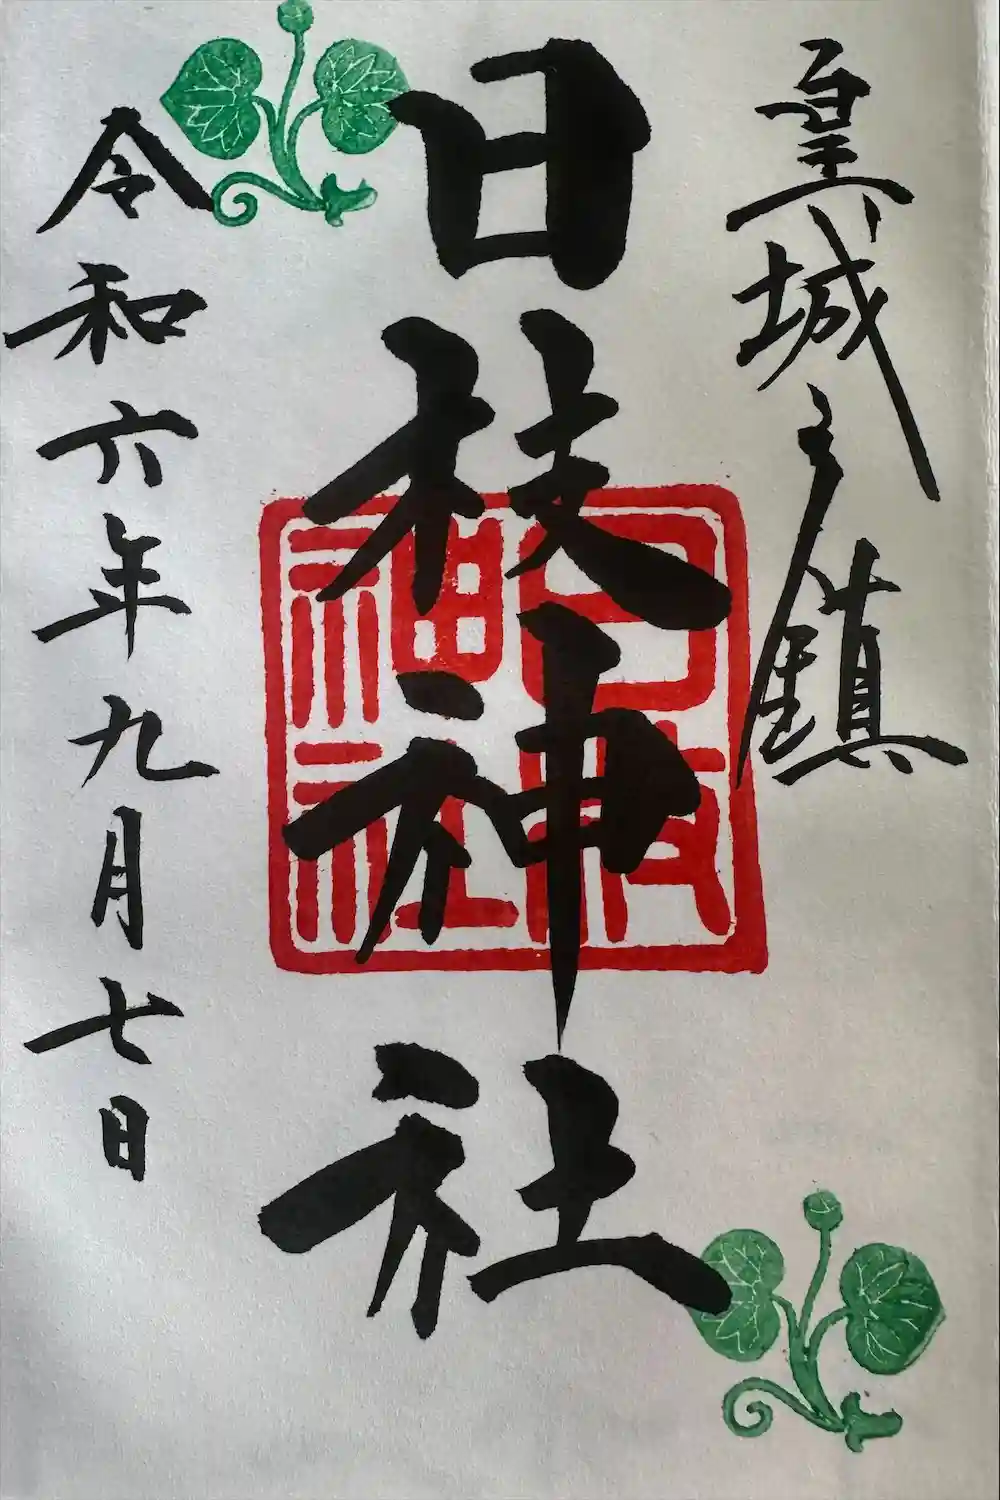 皇城之鎮
日枝神社
日枝
神社
令和六年九月七日